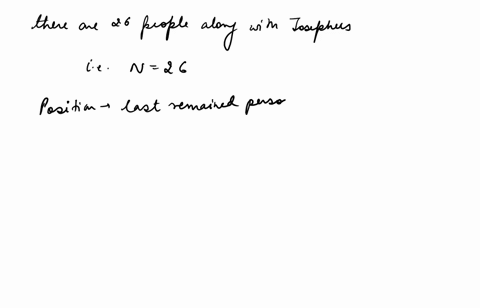 there are 26 people along with Josephus
i.e. N = 26
Position → last remained perso